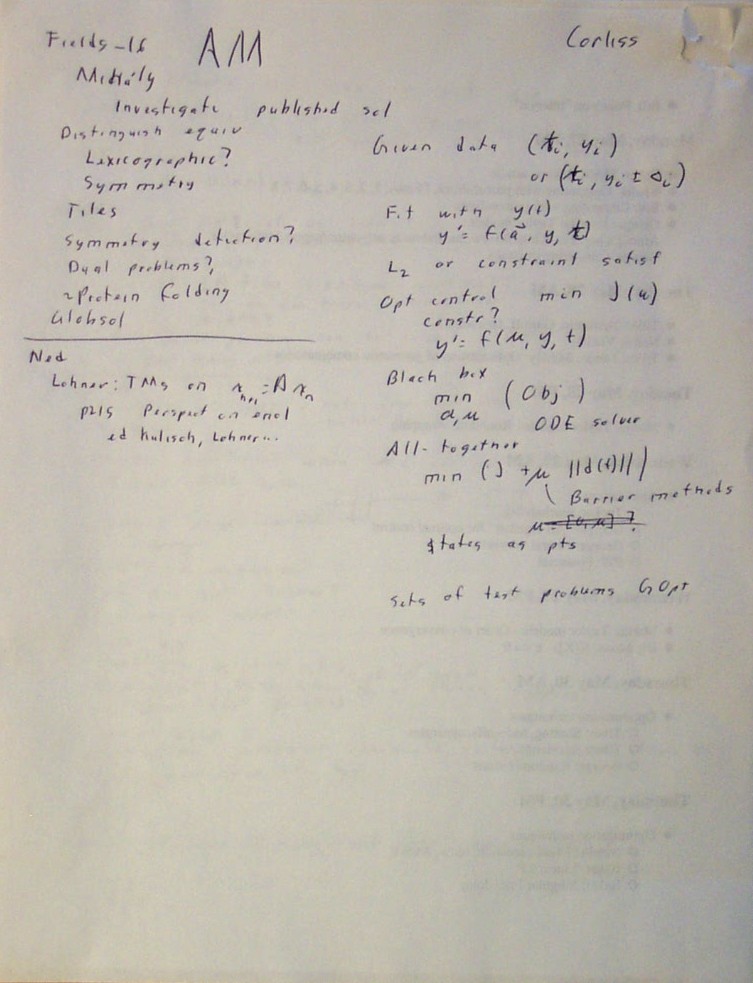 Fields-16 AM Corliss
Mihály
Investigate published sol
Distinguish equiv
Lexicographic?
Symmetry
Tiles
Symmetry detection?
Dual problems?
~Protein folding
Globsol
Ned
Lohner: TMs on x_{n+1} = A x_n
p215 Perspect on encl
ed Kulisch, Lohner...
Given data (t_i, y_i)
or (t_i, y_i ± Δ_i)
Fit with y(t)
y' = f(a⃗, y, t)
L_2 or constraint satisf
Opt control min J(u)
constr?
y' = f(u, y, t)
Black box
min (Obj)
a, u ODE solver
All-together
min (J + μ ||d(t)||)
Barrier methods
states as pts
Sets of test problems GOpt